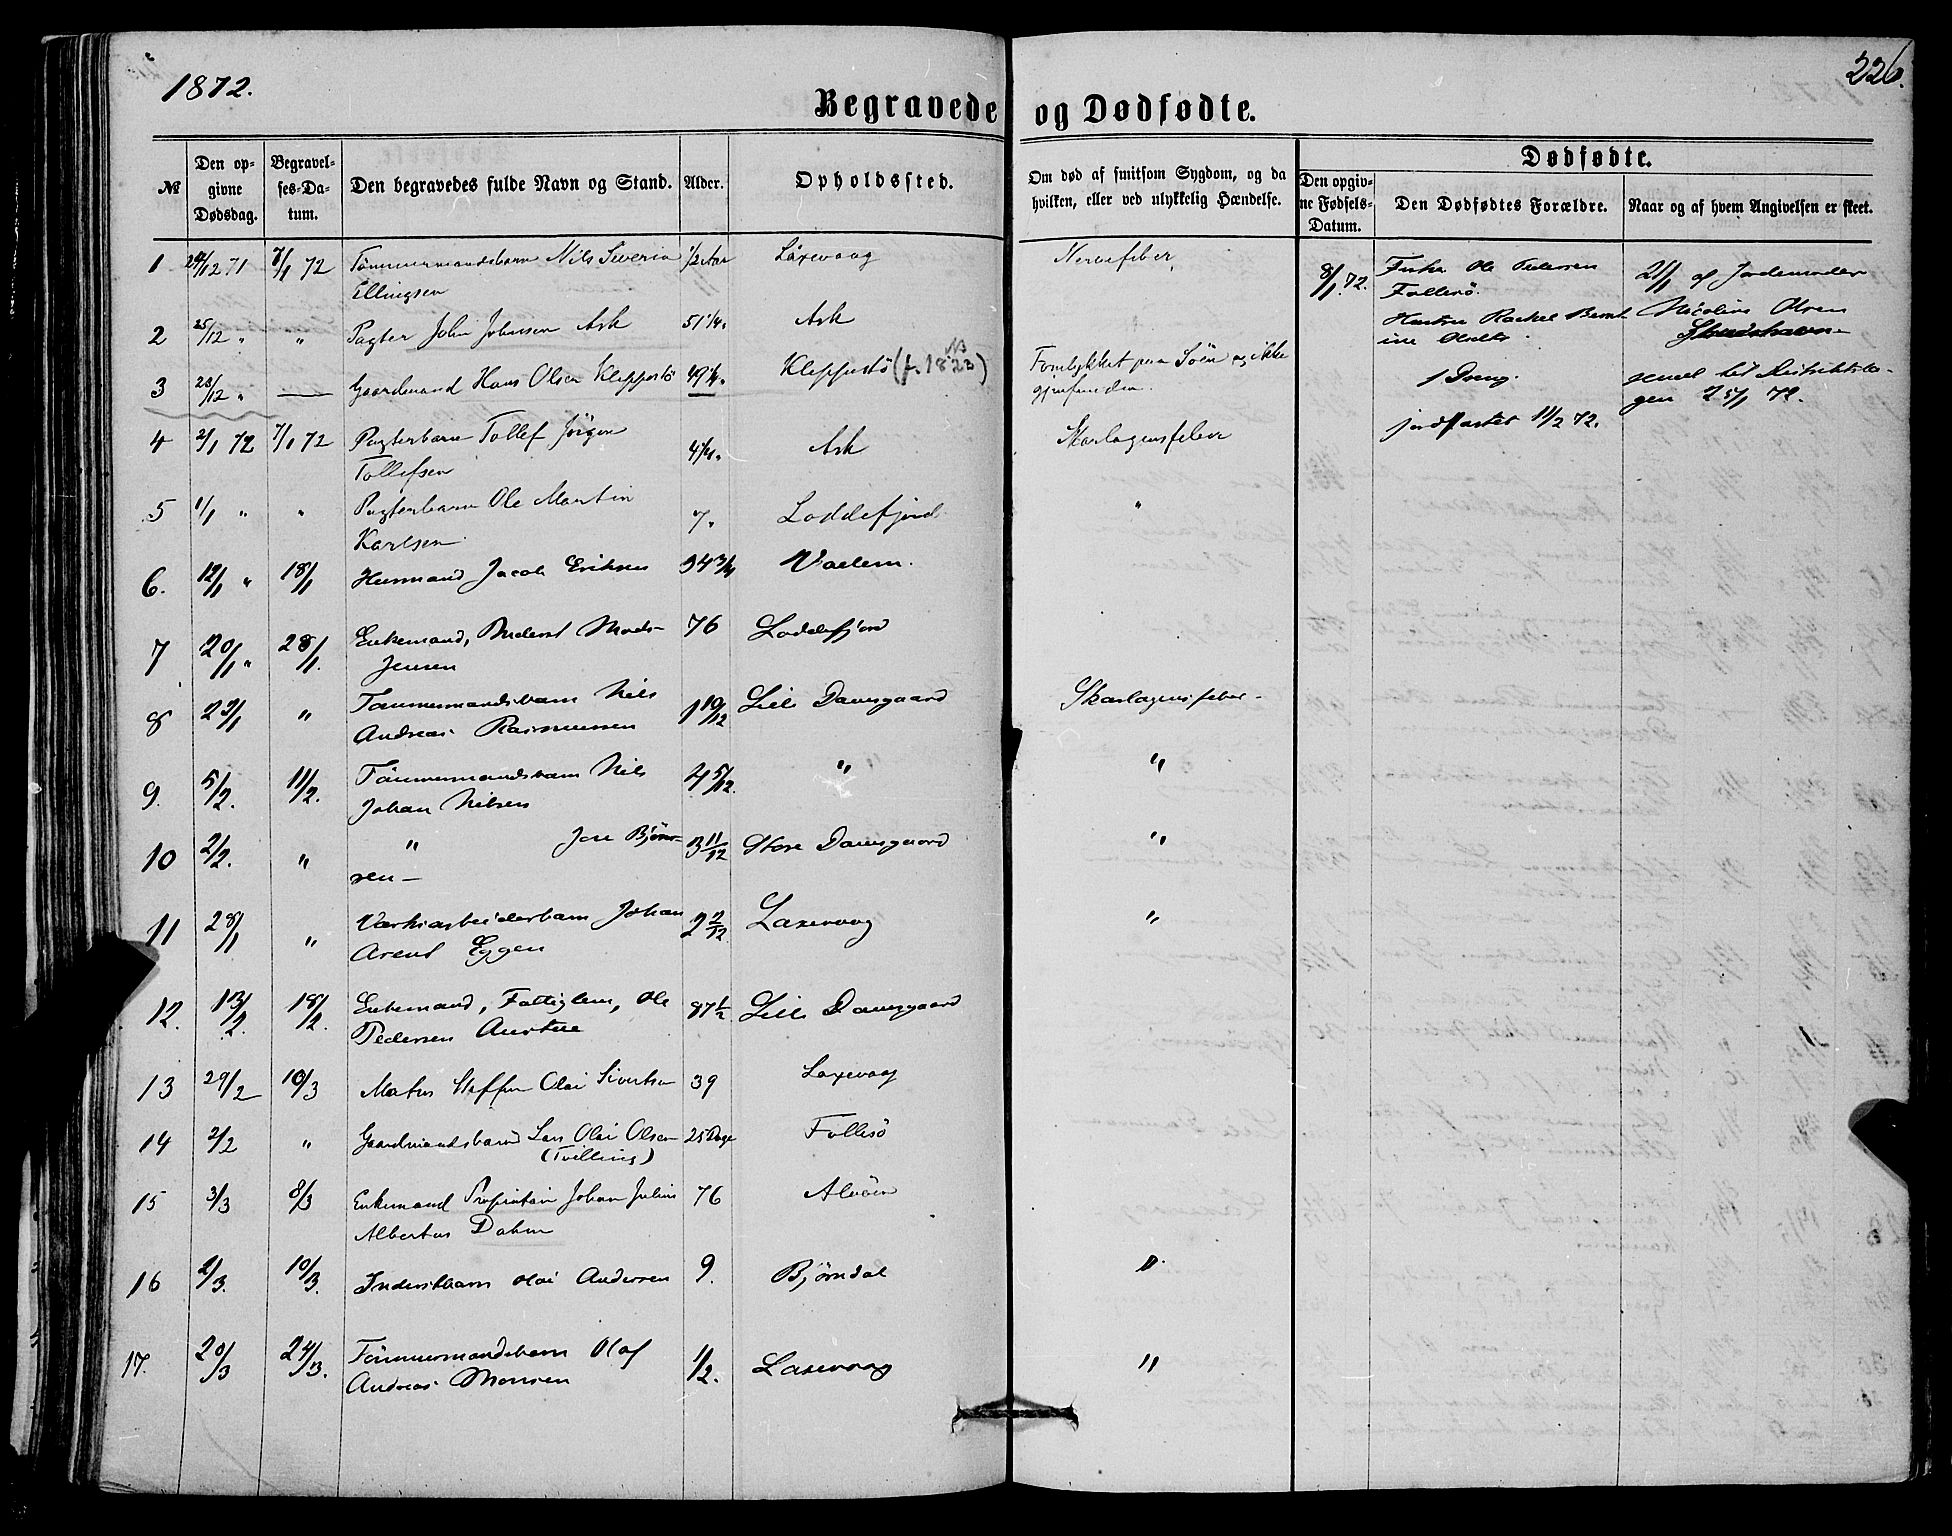 1872.
226.
Begravede og Dødfødte.
№
Den op-
givne
Dødsdag.
Begravel-
ses-Da-
tum.
Den begravedes fulde Navn og Stand.
Alder.
Opholdssted.
Om død af smitsom Sygdom, og da
hvilken, eller ved ulykkelig Hændelse.
Dødfødte.
Den opgiv-
ne Fødsels-
Datum.
Den Dødfødtes Forældre.
Naar og af hvem Angivelsen er skeet.
1 24/12 71 7/1 72 Tømmermandsbarn Nils Severin 1/2 Aar Laxevaag Nervefeber
Ellingsen
2 25/12 " " Pagter John Johnsen Ask 51 1/4 " Ask
3 23/12 " — Gaardmand Hans Olsen Kleppestø 49 1/4 " Kleppestø (f. 1822) Forulykket paa Søen og ikke
gjenfunden.
4 2/1 72 7/1 72 Pagterbarn Tollef Jørgen 4 1/4 " Ask Skarlagensfeber
Tollefsen
5 1/1 " " Pagterbarn Ole Martin 7 " Loddefjord "
Karlsen
6. 12/1 " 18/1 Husmand Jacob Eriksen 34 3/4 Vadem.
7 20/1 " 28/1. Enkemand, Inderst Mads 76 Loddefjord
Jensen
8 23/1 " Tømmermandsbarn Nils 1 10/12 Lille Damsgaard Skarlagensfeber
Andreas Rasmussen
9. 5/2. 11/2. Tømmermandsbarn Nils 4 5/12. " "
Johan Nilsen
10 2/2. " " Jon Bjørn- 3 11/12 Store Damsgaard "
sen
11 28/1 " Værksarbeiderbarn Johan 2 2/12 Laxevaag "
Arent Eggen
12. 13/2. 18/2. Enkemand, Fattiglem, Ole 87 1/2 Lille Damsgaard
Pedersen
13 29/2 10/3 Matros Steffen Olai Sivertsen 39 Laxevaag
14 2/2 " Gaardmandsbarn Lars Olai Olsen 25 Dage Follesø
(Tvilling)
15 3/3 8/3 Enkemand Proprietair Johan Julius 76 Alvøen
Albertus Dahm
16 2/3. 10/3. Inderstbarn Olai Andersen 9. Bjørndal "
17. 20/3 24/3. Tømmermandsbarn Olaf 1/2. Laxevaag "
Andreas Monsen
8/1. 72. Fisker Ole Pedersen
Follesø.
Hustru Rachel Bernt
ine Olsdtr.
1 Dreng.
jordfæstet 11/2 72.
21/1 af Jordemoder
Nicoline Olsen
25/1 72.